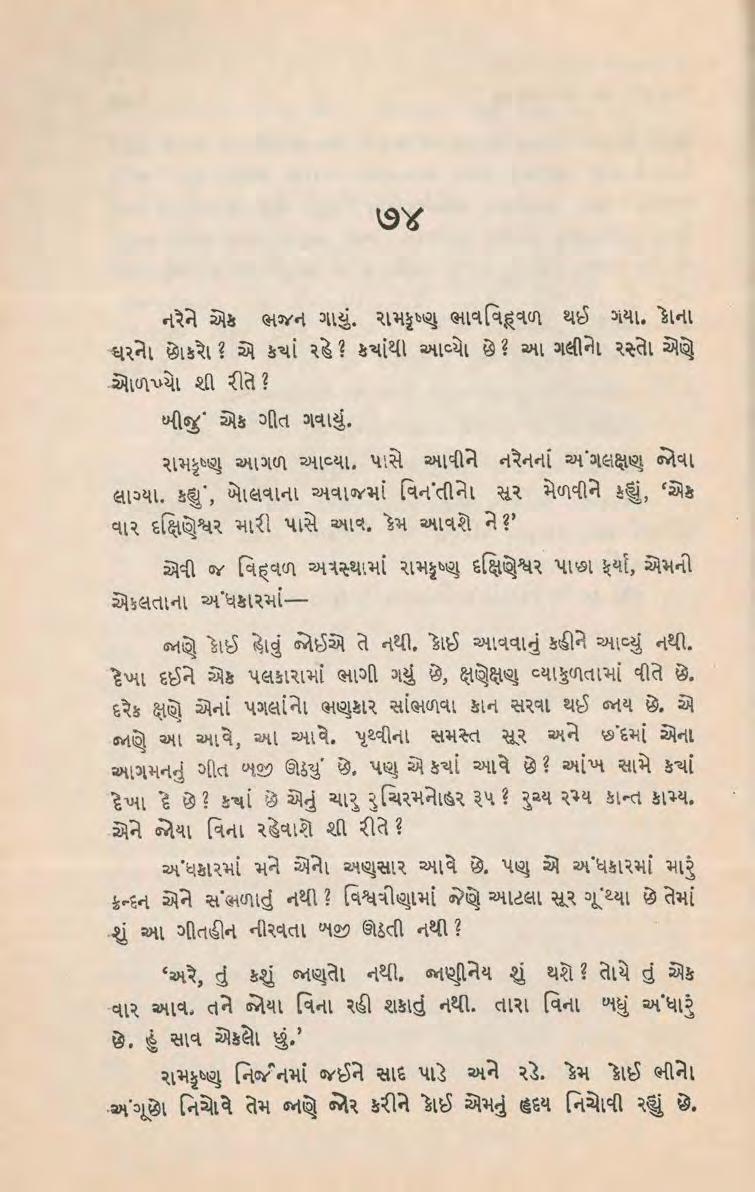 ૭૪
નરેને એક ભજન ગાયું. રામકૃષ્ણ ભાવવિહ્વળ થઈ ગયા. કોના
ઘરનો છોકરો ? એ કયાં રહે ? કયાંથી આવ્યો છે ? આ ગલીનો રસ્તો એણે
ઓળખ્યો શી રીતે ?
બીજું એક ગીત ગવાયું.
રામકૃષ્ણ આગળ આવ્યા. પાસે આવીને નરેનનાં અંગલક્ષણ જોવા
લાગ્યા. કહ્યું, બોલવાના અવાજમાં વિનંતીનો સૂર મેળવીને કહ્યું, ‘એક
વાર દક્ષિણેશ્વર મારી પાસે આવ. કેમ આવશે ને ?’
એવી જ વિહ્વળ અવસ્થામાં રામકૃષ્ણ દક્ષિણેશ્વર પાછા ફર્યા, એમની
એકલતાના અંધકારમાં—
જાણે કોઈ હોવું જોઈએ તે નથી. કોઈ આવવાનું કહીને આવ્યું નથી.
દેખા દઈને એક પલકારામાં ભાગી ગયું છે, ક્ષણેક્ષણ વ્યાકુળતામાં વીતે છે.
દરેક ક્ષણે એનાં પગલાંનો ભણકાર સાંભળવા કાન સરવા થઈ જાય છે. એ
જાણે આ આવે, આ આવે. પૃથ્વીના સમસ્ત સૂર અને છંદમાં એના
આગમનનું ગીત બજી ઊઠયું છે. પણ એ કયાં આવે છે ? આંખ સામે કયાં
દેખા દે છે ? કયાં છે એનું ચારુ રુચિરમનોહર રૂપ ? રુચ્ય રમ્ય કાન્ત કામ્ય.
એને જોયા વિના રહેવાશે શી રીતે ?
અંધકારમાં મને એનો અણસાર આવે છે. પણ એ અંધકારમાં મારું
ક્રન્દન એને સંભળાતું નથી ? વિશ્વવીણામાં જેણે આટલા સૂર ગૂંથ્યા છે તેમાં
શું આ ગીતહીન નીરવતા બજી ઊઠતી નથી ?
‘અરે, તું કશું જાણતો નથી. જાણીનેય શું થશે ? તોયે તું એક
વાર આવ. તને જોયા વિના રહી શકાતું નથી. તારા વિના બધું અંધારું
છે. હું સાવ એકલો છું.’
રામકૃષ્ણ નિર્જનમાં જઈને સાદ પાડે અને રડે. કેમ કોઈ ભીનો
અંગૂછો નિચોવે તેમ જાણે જોર કરીને કોઈ એમનું હૃદય નિચોવી રહ્યું છે.